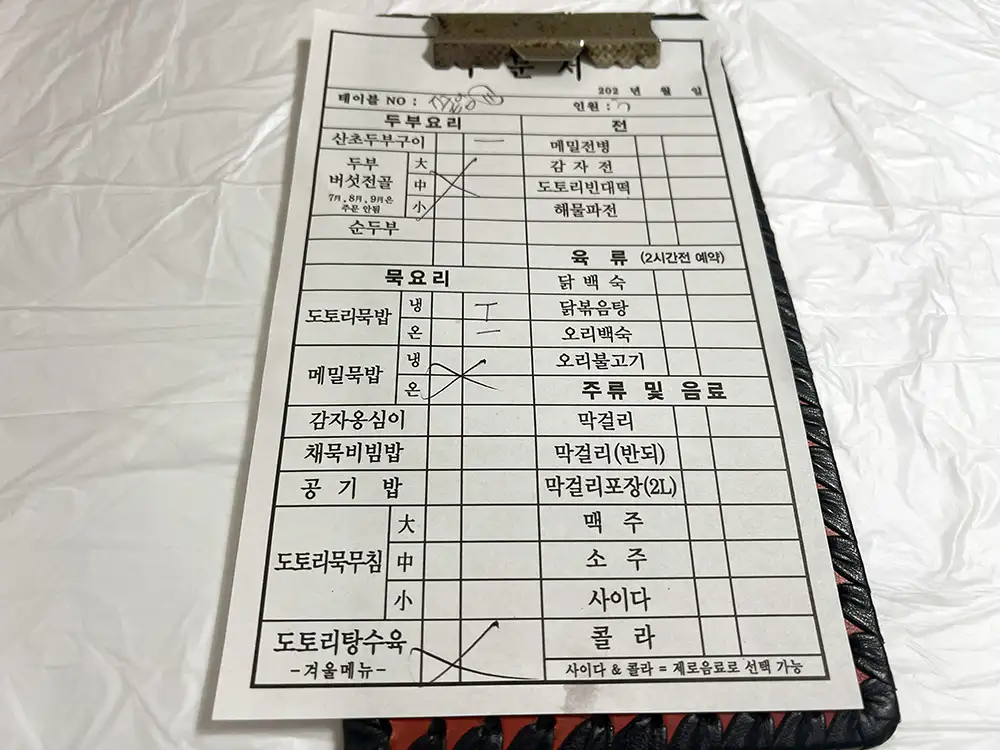 202 년 월 일
테이블 NO : 인원 :
두부요리 전
산초두부구이 一 메밀전병
두부 버섯전골 大 감자전
7月, 8月, 9月은 주문 안됨 中 도토리빈대떡
小 해물파전
순두부
육류 (2시간전 예약)
묵요리 닭백숙
도토리묵밥 냉 T 닭볶음탕
온 一 오리백숙
메밀묵밥 냉 오리불고기
온 주류 및 음료
감자옹심이 막걸리
채묵비빔밥 막걸리(반되)
공기밥 막걸리포장(2L)
도토리묵무침 大 맥주
中 소주
小 사이다
도토리탕수육 콜라
-겨울메뉴- 사이다 & 콜라 = 제로음료로 선택 가능